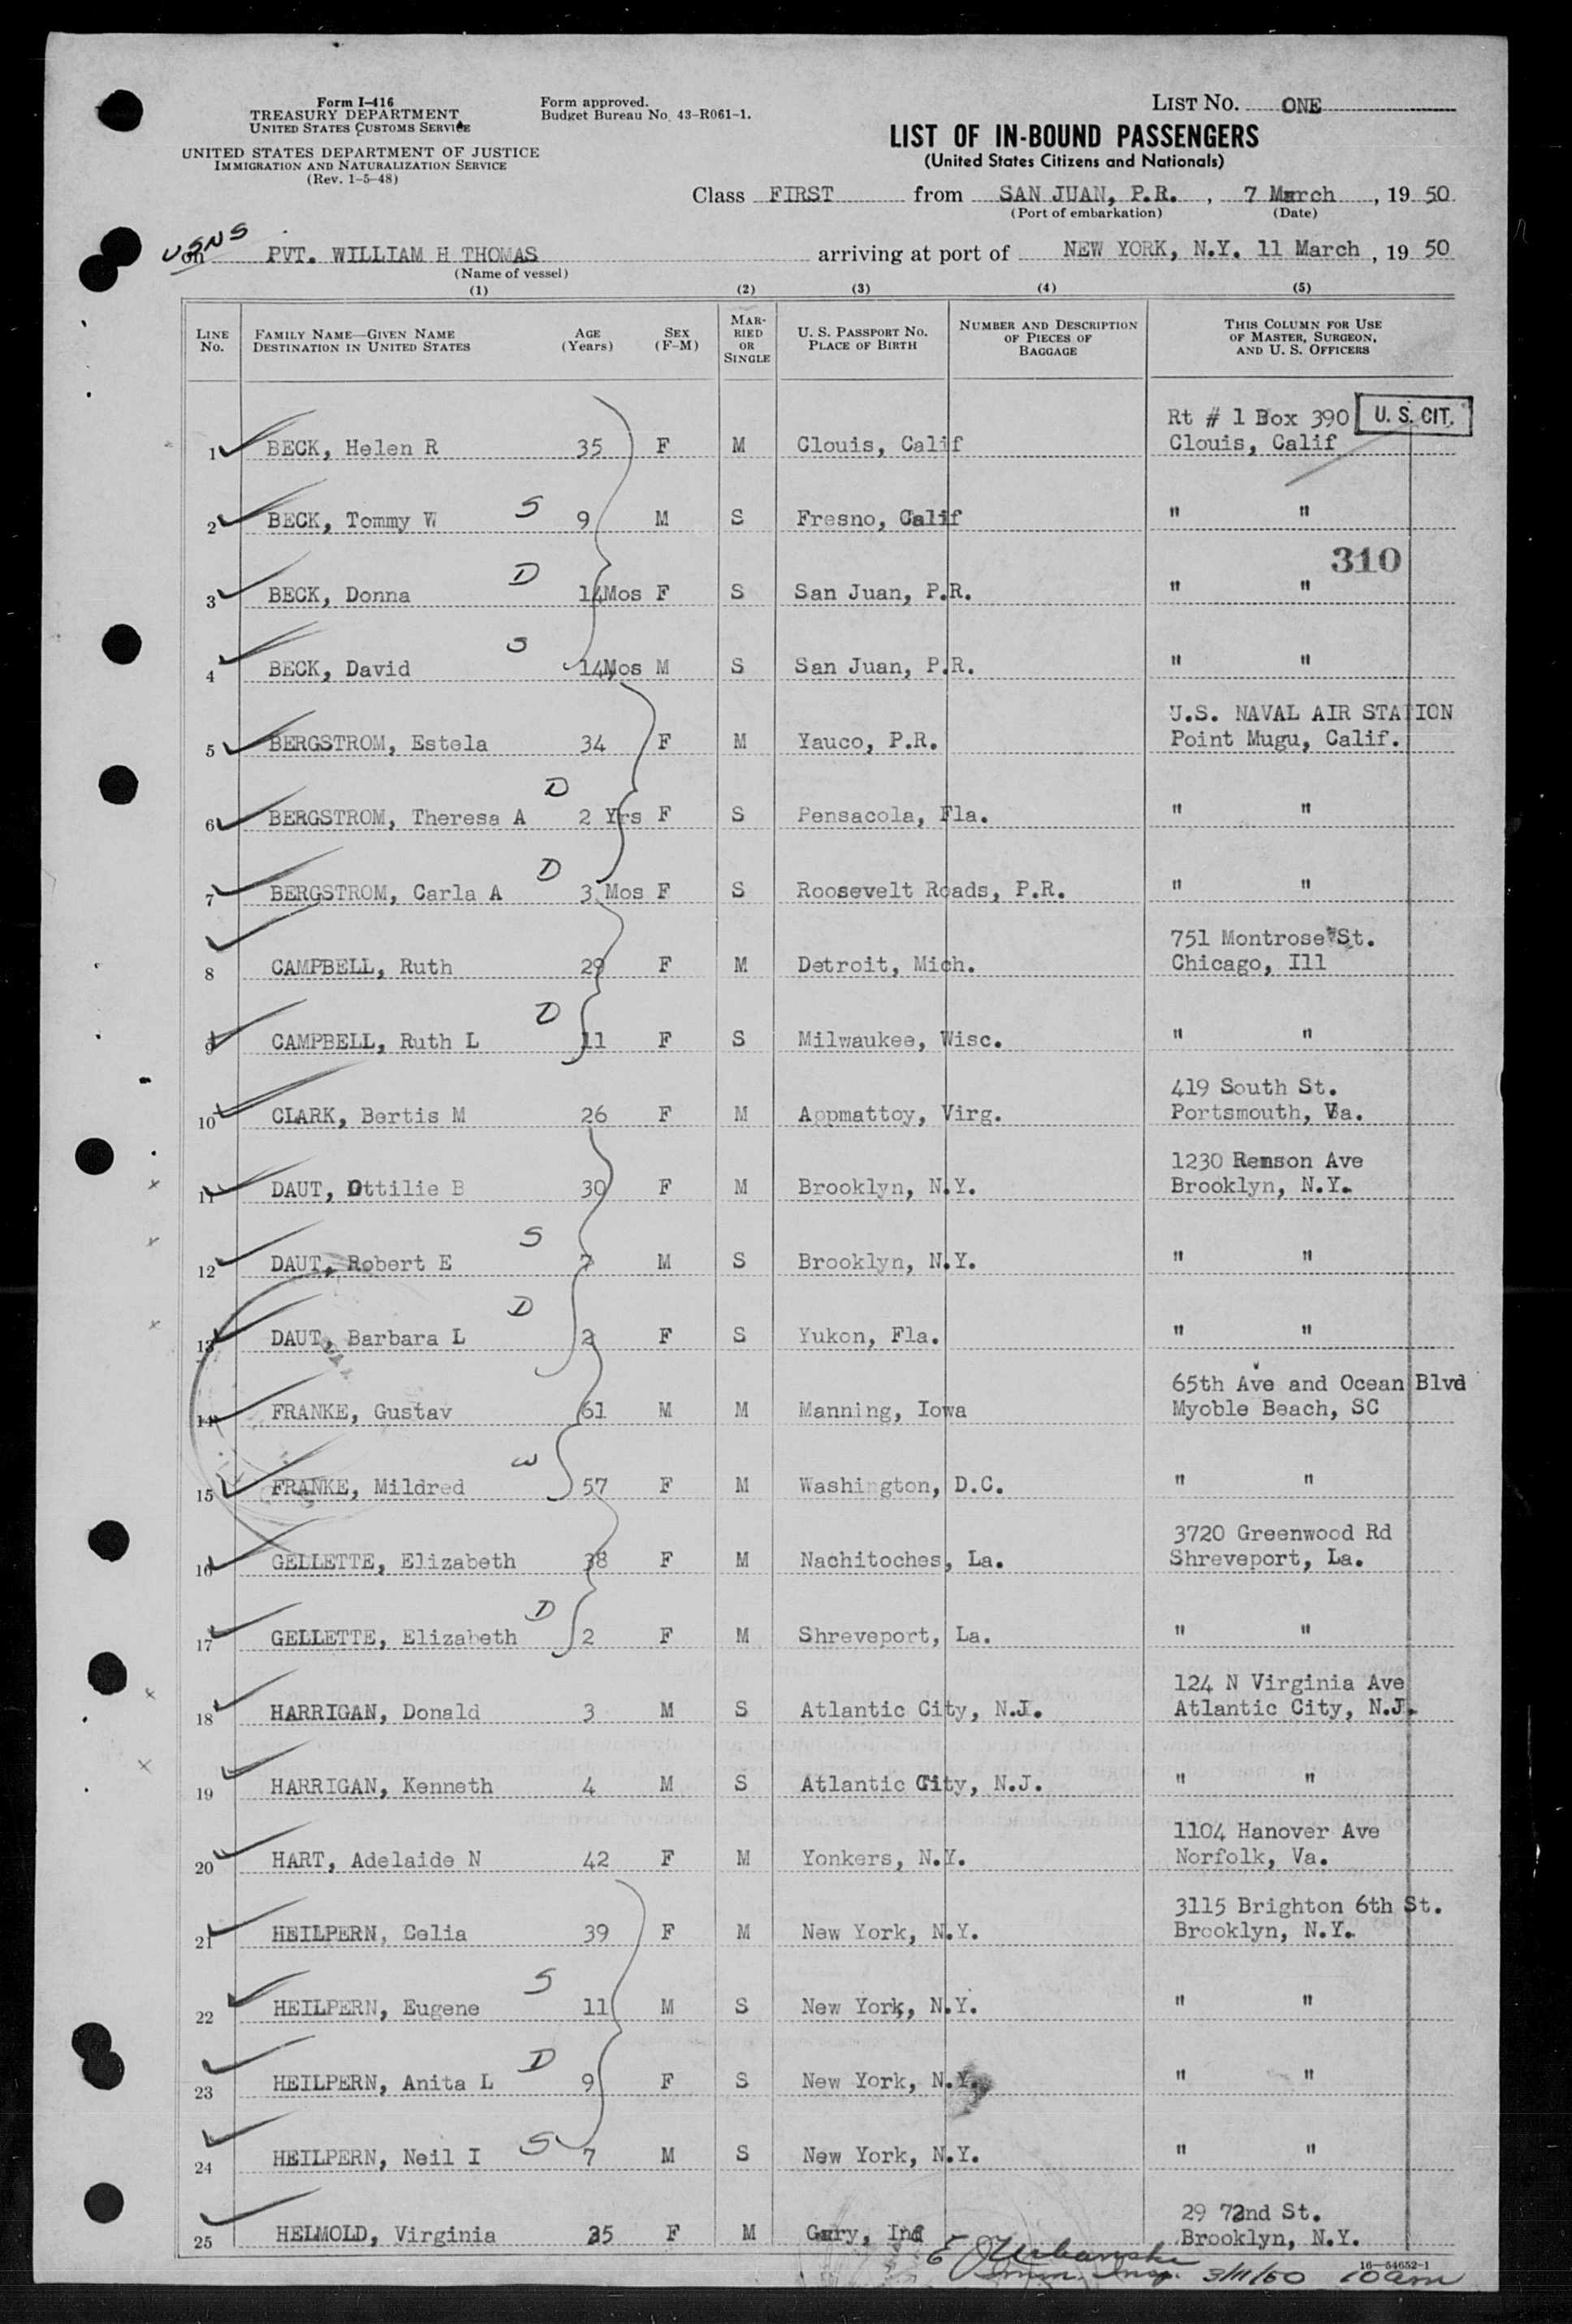 Form I-416
TREASURY DEPARTMENT
UNITED STATES CUSTOMS SERVICE
UNITED STATES DEPARTMENT OF JUSTICE
IMMIGRATION AND NATURALIZATION SERVICE
(Rev. 1-5-48)
Form approved.
Budget Bureau No. 43-R061-1.
LIST NO. ONE
LIST OF IN-BOUND PASSENGERS
(United States Citizens and Nationals)
Class FIRST from SAN JUAN, P.R. , 7 March , 19 50
(Port of embarkation) (Date)
USNS
on PVT. WILLIAM H THOMAS arriving at port of NEW YORK, N.Y. 11 March , 19 50
(Name of vessel)
(1) (2) (3) (4) (5)
LINE NO. FAMILY NAME—GIVEN NAME DESTINATION IN UNITED STATES AGE (Years) SEX (F-M) MARRIED OR SINGLE U. S. PASSPORT NO. PLACE OF BIRTH NUMBER AND DESCRIPTION OF PIECES OF BAGGAGE THIS COLUMN FOR USE OF MASTER, SURGEON, AND U. S. OFFICERS
Rt # 1 Box 390 U. S. CIT.
1 BECK, Helen R 35 F M Clouis, Calif Clouis, Calif
2 BECK, Tommy W S 9 M S Fresno, Calif " "
310
3 BECK, Donna D 14Mos F S San Juan, P.R. " "
4 BECK, David S 14Mos M S San Juan, P.R. " "
U.S. NAVAL AIR STATION
5 BERGSTROM, Estela 34 F M Yauco, P.R. Point Mugu, Calif.
6 BERGSTROM, Theresa A D 2 Yrs F S Pensacola, Fla. " "
7 BERGSTROM, Carla A D 3 Mos F S Roosevelt Roads, P.R. " "
751 Montrose St.
8 CAMPBELL, Ruth 29 F M Detroit, Mich. Chicago, Ill
9 CAMPBELL, Ruth L D 11 F S Milwaukee, Wisc. " "
419 South St.
10 CLARK, Bertis M 26 F M Appmattoy, Virg. Portsmouth, Va.
1230 Remson Ave
11 DAUT, Ottilie B 30 F M Brooklyn, N.Y. Brooklyn, N.Y.
12 DAUT, Robert E S 7 M S Brooklyn, N.Y. " "
13 DAUT, Barbara L D 2 F S Yukon, Fla. " "
65th Ave and Ocean Blvd
14 FRANKE, Gustav 61 M M Manning, Iowa Myoble Beach, SC
15 FRANKE, Mildred W 57 F M Washington, D.C. " "
3720 Greenwood Rd
16 GELLETTE, Elizabeth 38 F M Nachitoches, La. Shreveport, La.
17 GELLETTE, Elizabeth D 2 F M Shreveport, La. " "
124 N Virginia Ave
18 HARRIGAN, Donald 3 M S Atlantic City, N.J. Atlantic City, N.J.
19 HARRIGAN, Kenneth 4 M S Atlantic City, N.J. " "
1104 Hanover Ave
20 HART, Adelaide N 42 F M Yonkers, N.Y. Norfolk, Va.
3115 Brighton 6th St.
21 HEILPERN, Celia 39 F M New York, N.Y. Brooklyn, N.Y.
22 HEILPERN, Eugene S 11 M S New York, N.Y. " "
23 HEILPERN, Anita L D 9 F S New York, N.Y. " "
24 HEILPERN, Neil I S 7 M S New York, N.Y. " "
29 72nd St.
25 HELMOLD, Virginia 35 F M Gary, Ind Brooklyn, N.Y.
E J Urbanski
Imm. Insp. 3/11/50 10am
16—54652-1